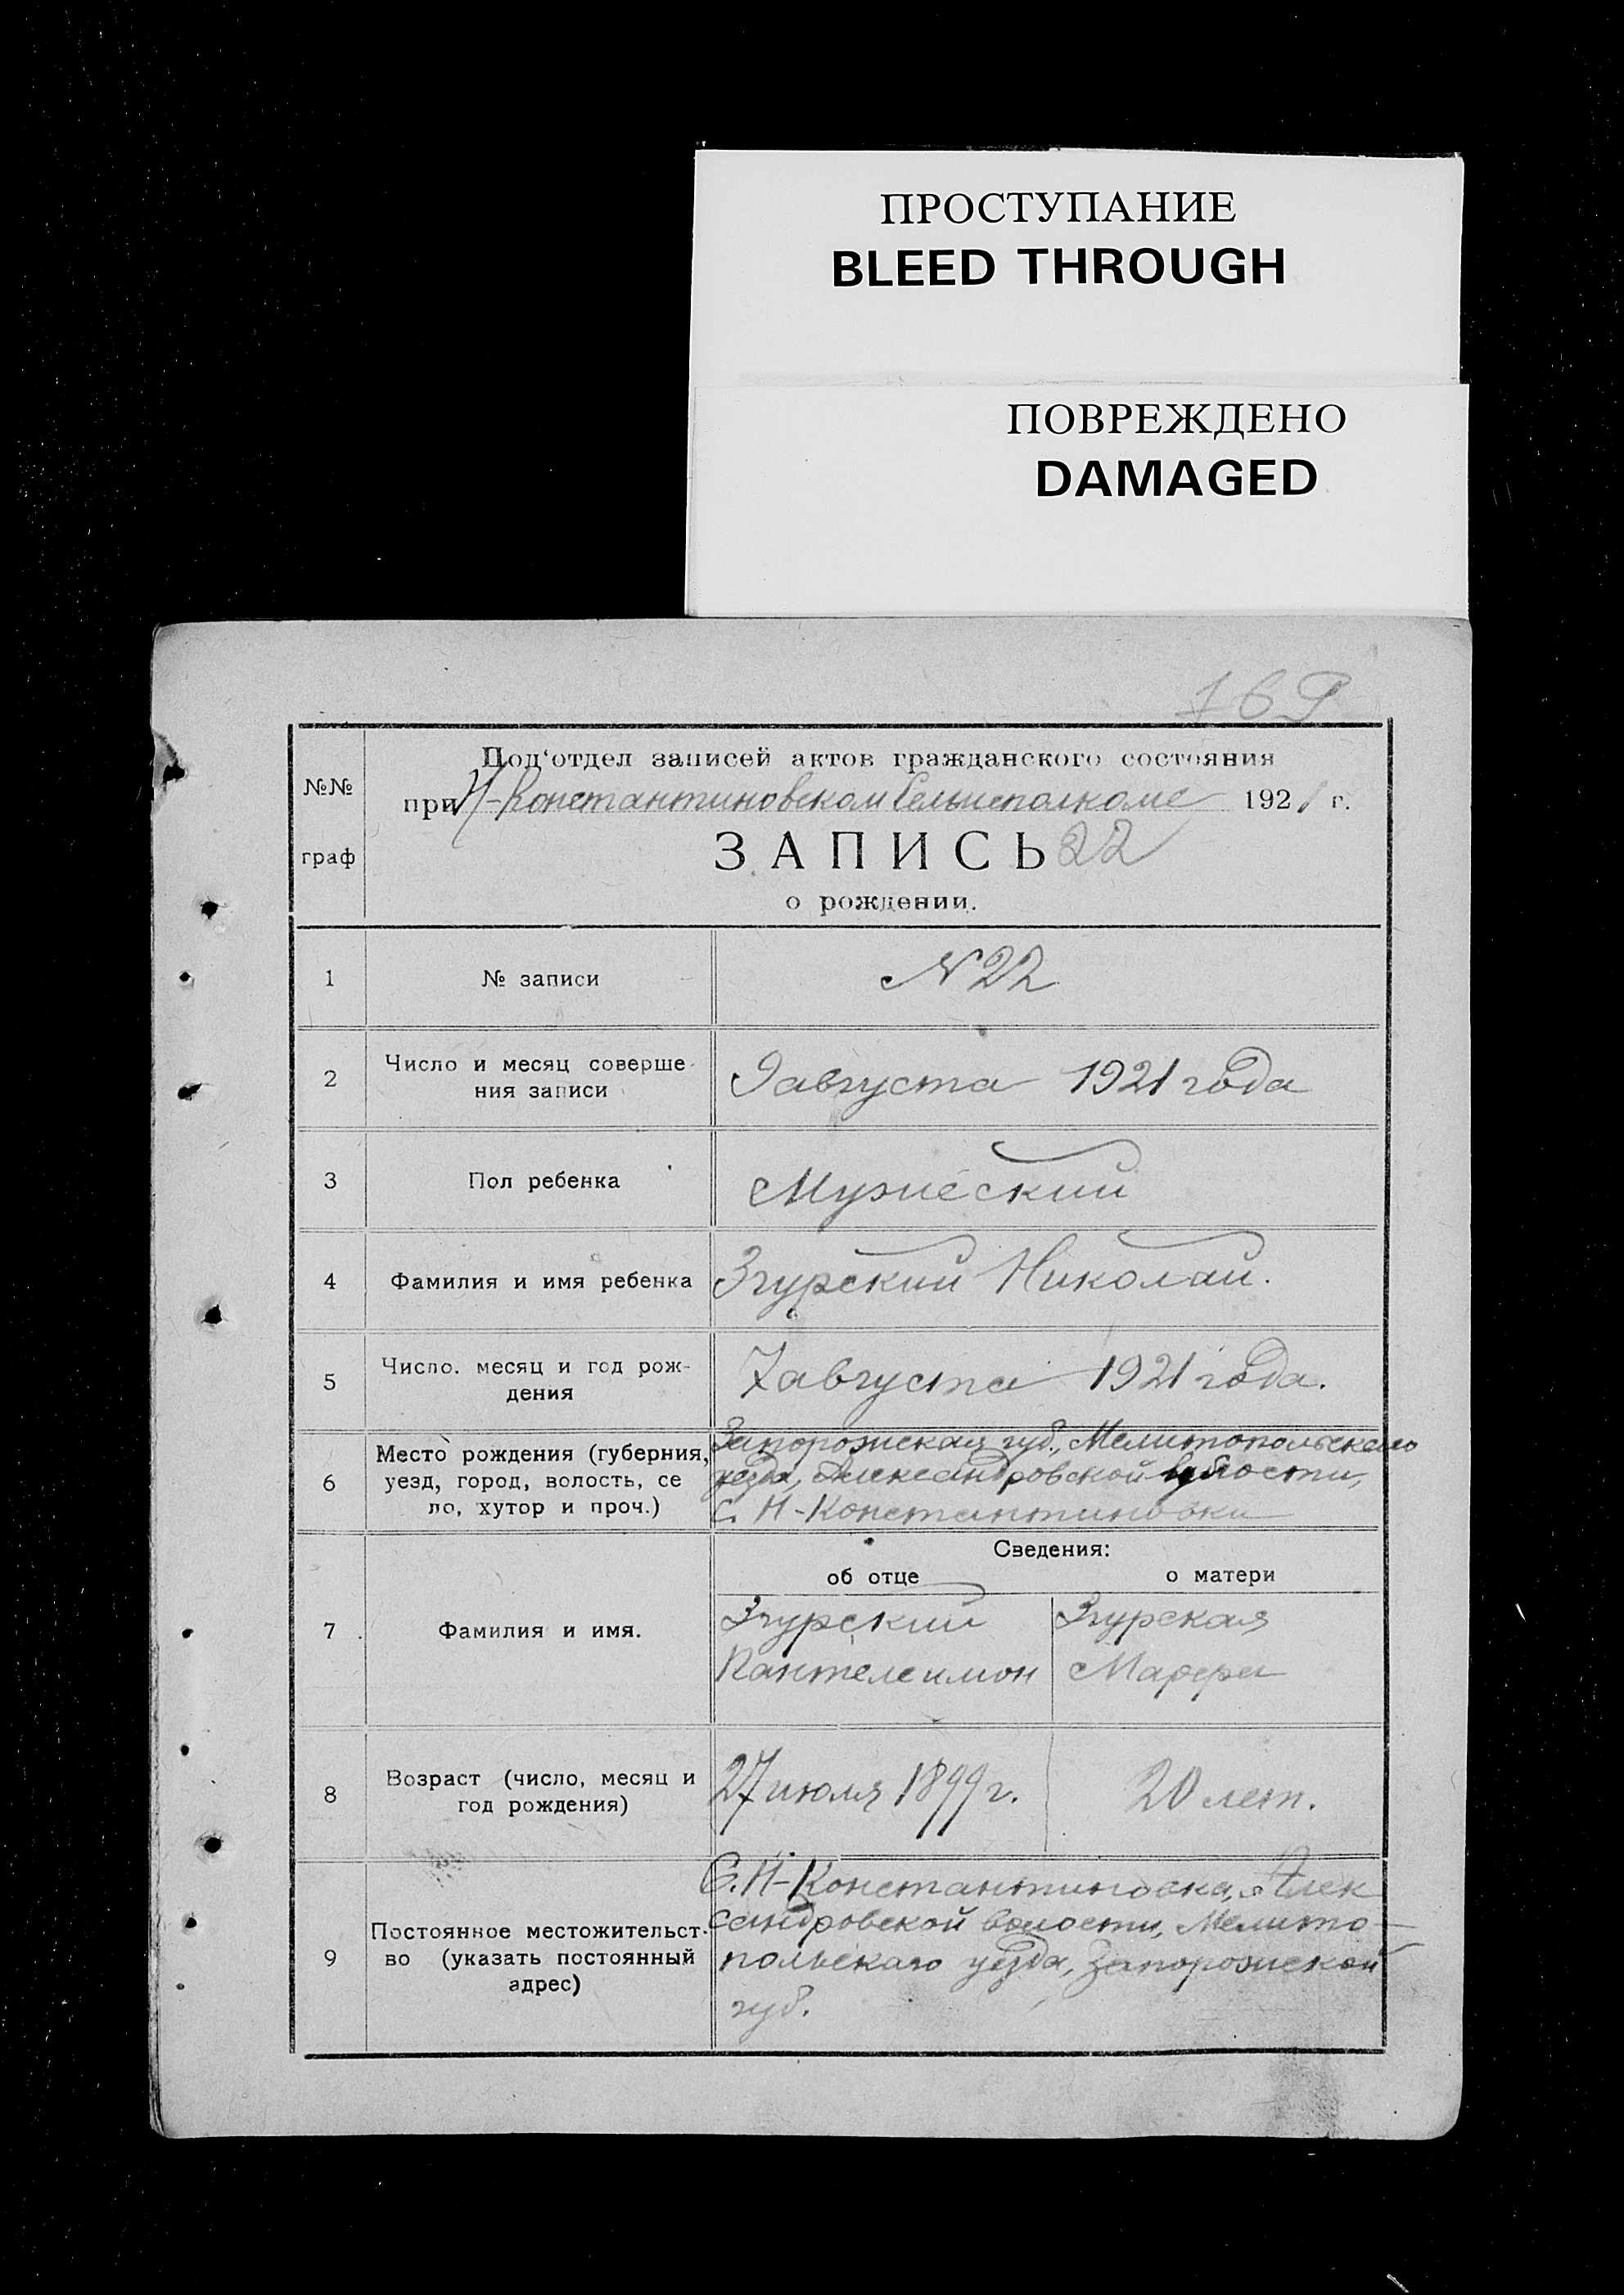 ПРОСТУПАНИЕ
BLEED THROUGH
ПОВРЕЖДЕНО
DAMAGED
169
№№
граф
Под‘отдел записей актов гражданского состояния
при Н-Константиновском Сельисполкоме 1921 г.
ЗАПИСЬ 22
о рождении.
1
№ записи
N 22
2
Число и месяц соверше-
ния записи
9 августа 1921 года
3
Пол ребенка
Мужеский
4
Фамилия и имя ребенка
Згурский Николай.
5
Число. месяц и год рож-
дения
7 августа 1921 года.
6
Место рождения (губерния,
уезд, город, волость, се
ло, хутор и проч.)
Запорожская губ., Мелитопольскаго
уезда, Александровской волости,
С. Н-Константиновки
Сведения:
об отце
о матери
7
Фамилия и имя.
Згурский
Пантелеимон
Згурская
Марфа
8
Возраст (число, месяц и
год рождения)
27 июля 1899 г.
20 лет.
9
Постоянное местожительст-
во (указать постоянный
адрес)
С. Н-Константиновка, Алек
сандровской волости, Мелито-
польскаго уезда, Запорожской
губ.